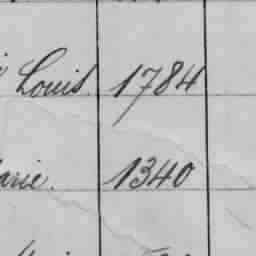 Louis 1784
arie. 1340